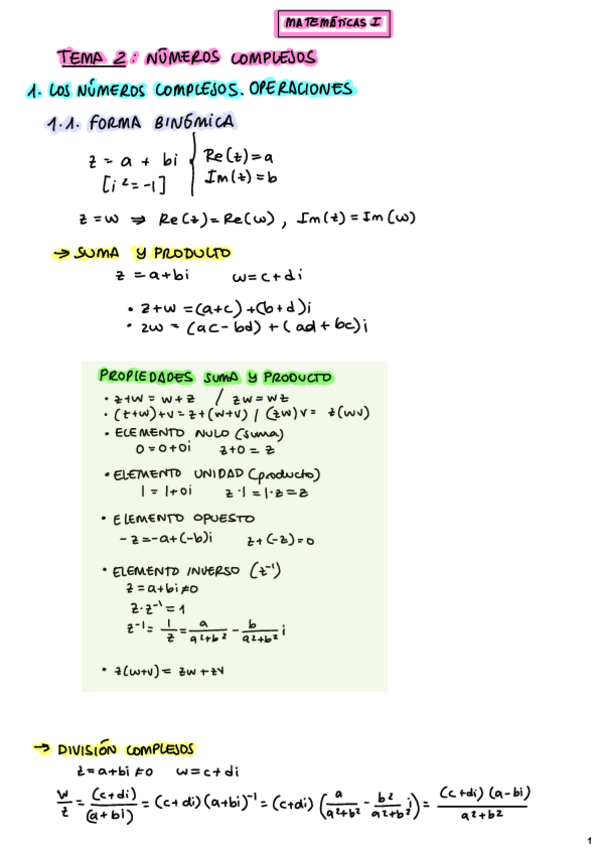 MATEMÁTICAS I
TEMA 2: NÚMEROS COMPLEJOS
1. LOS NÚMEROS COMPLEJOS. OPERACIONES
1.1. FORMA BINÓMICA
z = a + bi { Re(z) = a
[i² = -1] Im(z) = b
z = w ⇒ Re(z) = Re(w), Im(z) = Im(w)
→ SUMA Y PRODUCTO
z = a + bi w = c + di
• z+w = (a+c) + (b+d)i
• zw = (ac - bd) + (ad + bc)i
PROPIEDADES SUMA Y PRODUCTO
• z+w = w+z / zw = wz
• (z+w)+v = z+(w+v) / (zw)v = z(wv)
• ELEMENTO NULO (suma)
0 = 0+0i z+0 = z
• ELEMENTO UNIDAD (producto)
1 = 1+0i z·1 = 1·z = z
• ELEMENTO OPUESTO
-z = -a+(-b)i z+(-z) = 0
• ELEMENTO INVERSO (z⁻¹)
z = a+bi ≠ 0
z·z⁻¹ = 1
z⁻¹ = 1/z = a/(a²+b²) - b/(a²+b²) i
• z(w+v) = zw + zv
→ DIVISIÓN COMPLEJOS
z = a+bi ≠ 0 w = c+di
w/z = (c+di)/(a+bi) = (c+di)(a+bi)⁻¹ = (c+di) (a/(a²+b²) - b²/(a²+b²) i) = (c+di)(a-bi)/(a²+b²)
1